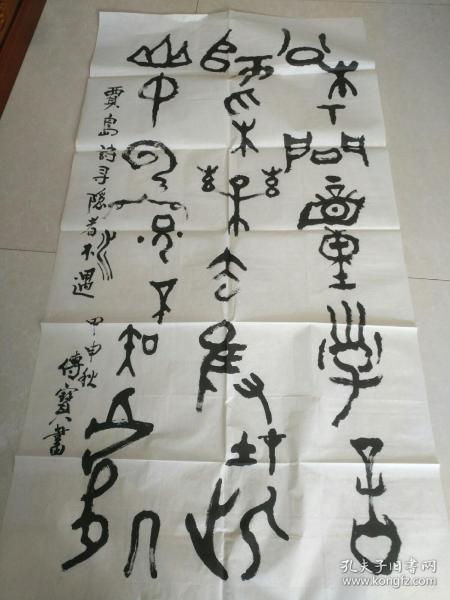 松下問童子言
師采藥去只在此
山中雲深不知處
賈島詩寻隐者不遇
甲申秋
傅寶書
孔夫子旧书网
www.kongfz.com